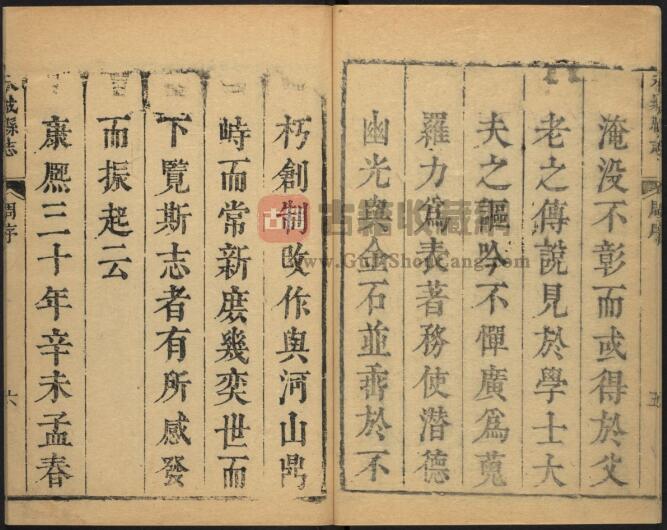 淹没不彰而或得於父
老之傳說見於學士大
夫之謳吟不憚廣爲蒐
羅力爲表著務使潛德
幽光與金石並垂於不
朽創制改作與河山鼎
峙而常新庶幾奕世而
下覽斯志者有所感發
而振起云
康熙三十年辛未孟春
城縣志
周序
六
五
古籍收藏網
www.GuJiShouCang.com